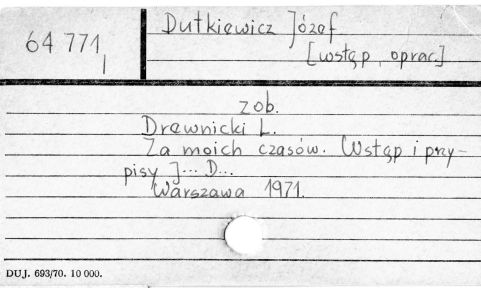 Dutkiewicz Józef
64 771
[wstęp, oprac]
zob.
Drewnicki L.
Za moich czasów. Wstęp i przy-
pisy J... D...
Warszawa 1971.
DUJ. 693/70. 10 000.